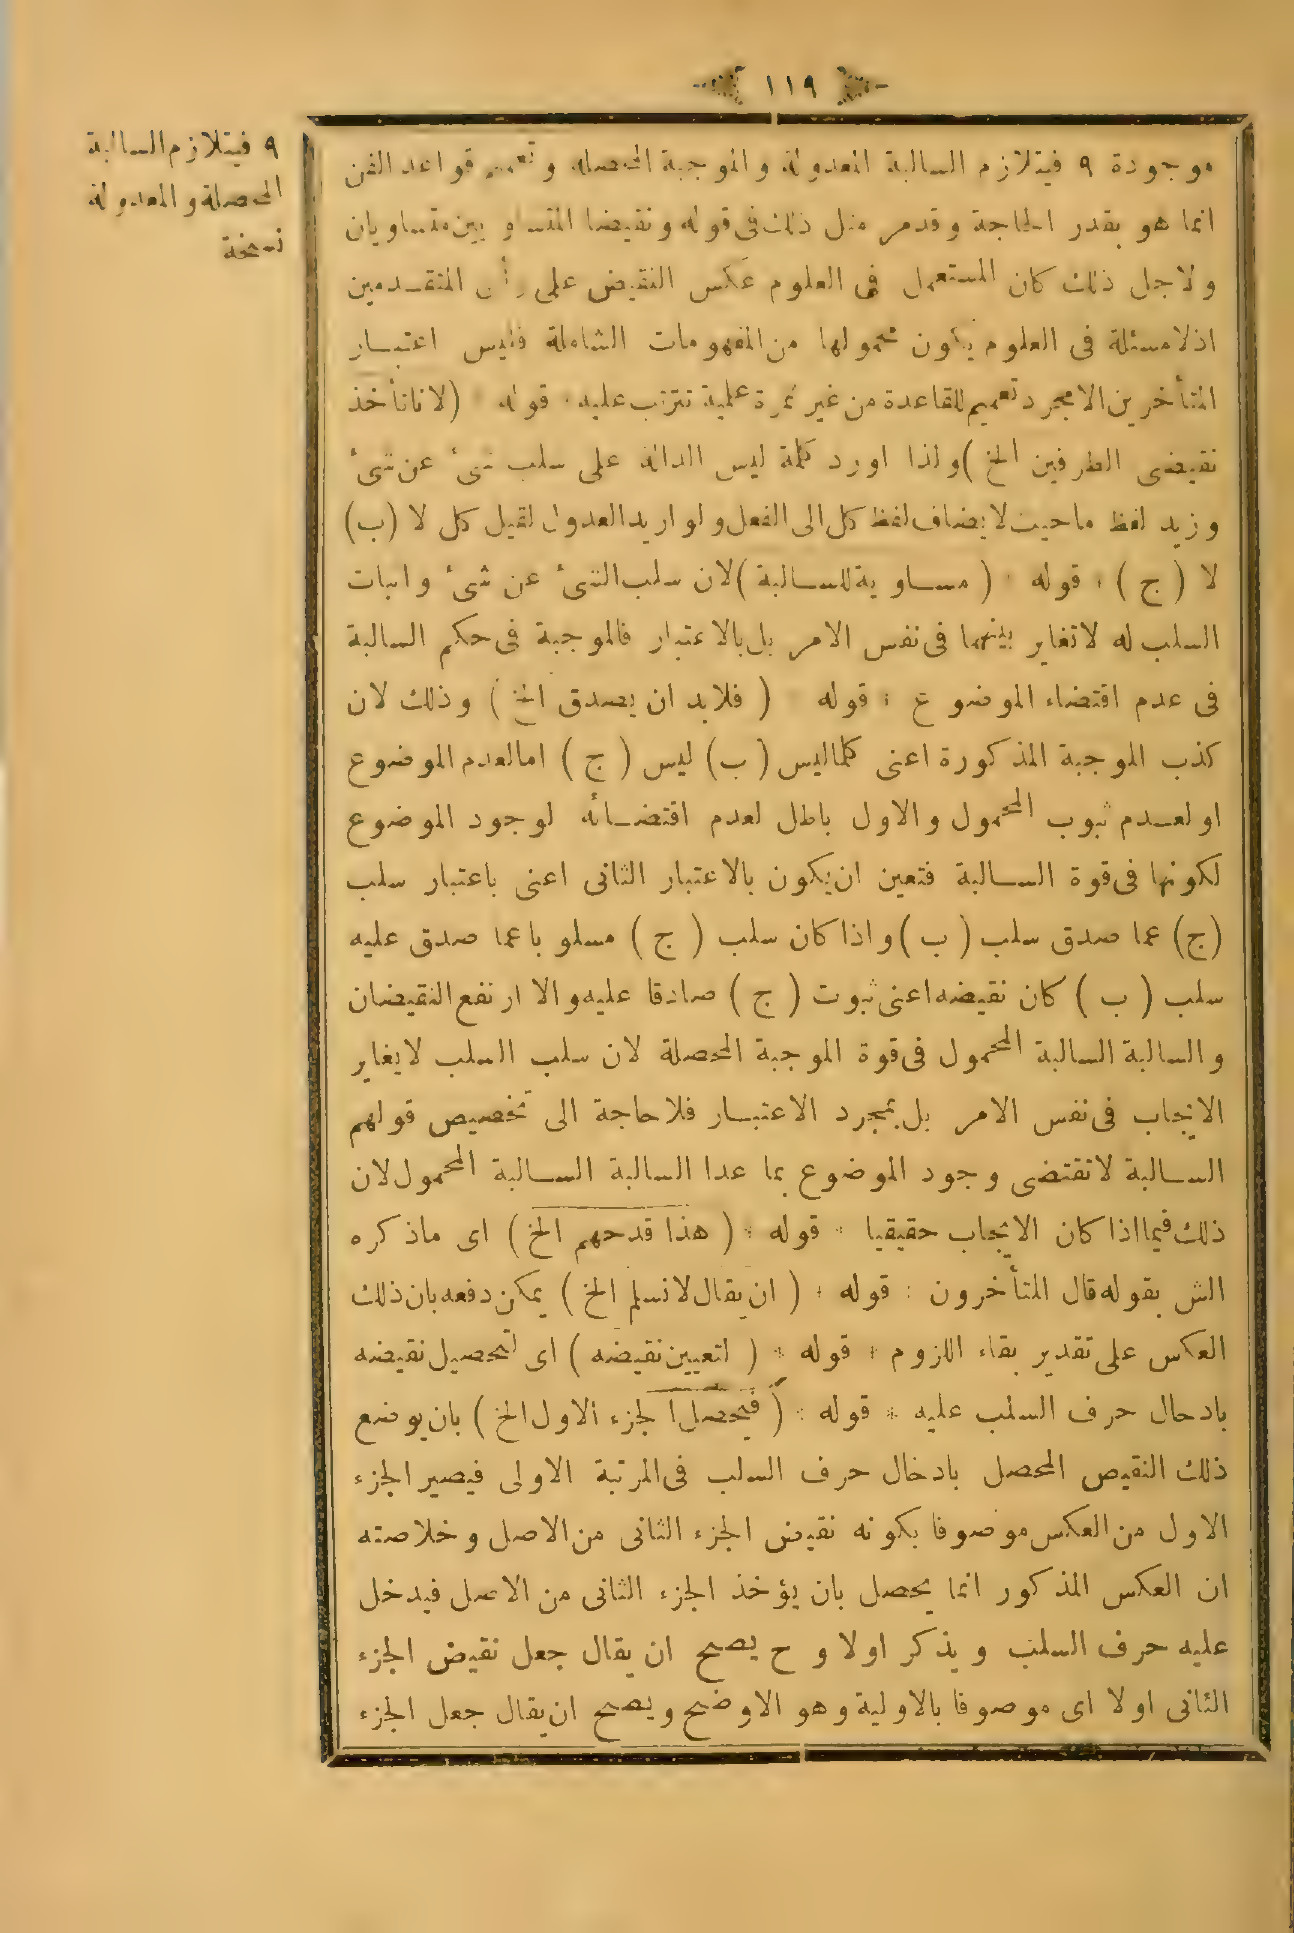 ١١٩
موجودة ٩ فيتلازم السالبة المعدولة والموجبة المحصلة وتعميم قواعد الفن
انما هو بقدر الحاجة وقدمر مثل ذلك فى قوله ونقيضا المتساويين متساويان
ولاجل ذلك كان المستعمل فى العلوم عكس النقيض على رأى المتقدمين
اذلا مسئلة فى العلوم يكون محمولها من المفهومات الشاملة فليس اعتبار
المتأخرين الا مجرد تعميم للقاعدة من غير ثمرة علمية تترتب عليه * قوله * (لانا نأخذ
نقيضى الطرفين الخ) ولذا اورد كلمة ليس الدالة على سلب شئ عن شئ
وزيد لفظ ما حيث لا يضاف لفظ كل الى الفعل ولو اريد العدول لقيل كل لا (ب)
لا (ج) * قوله * (مساوية للسالبة) لان سلب الشئ عن شئ واثبات
السلب له لا تغاير بينهما فى نفس الامر بل بالاعتبار فالموجبة فى حكم السالبة
فى عدم اقتضاء الموضوع * قوله * (فلابد ان يصدق الخ) وذلك لان
كذب الموجبة المذكورة اعنى كلما ليس (ب) ليس (ج) اما لعدم الموضوع
او لعدم ثبوب المحمول والاول باطل لعدم اقتضائه لوجود الموضوع
لكونها فى قوة السالبة فتعين ان يكون بالاعتبار الثانى اعنى باعتبار سلب
(ج) عما صدق سلب (ب) واذا كان سلب (ج) مسلوبا عما صدق عليه
سلب (ب) كان نقيضه اعنى ثبوت (ج) صادقا عليه والا ارتفع النقيضان
والسالبة السالبة المحمول فى قوة الموجبة المحصلة لان سلب السلب لا يغاير
الايجاب فى نفس الامر بل بمجرد الاعتبار فلا حاجة الى تخصيص قولهم
السالبة لا تقتضى وجود الموضوع بما عدا السالبة السالبة المحمول لان
ذلك فيما اذا كان الايجاب حقيقيا * قوله * (هذا قدحهم الخ) اى ماذكره
الش بقوله قال المتأخرون * قوله * (ان يقال لا نسلم الخ) يمكن دفعه بان ذلك
العكس على تقدير بقاء اللزوم * قوله * (لتعيين نقيضه) اى لتحصيل نقيضه
بادحال حرف السلب عليه * قوله * (فيحصل الجزء الاول الخ) بان يوضع
ذلك النقيص المحصل بادخال حرف السلب فى المرتبة الاولى فيصير الجزء
الاول من العكس موصوفا بكونه نقيض الجزء الثانى من الاصل وخلاصته
ان العكس المذكور انما يحصل بان يؤخذ الجزء الثانى من الاصل فيدخل
عليه حرف السلب ويذكر اولا وح يصح ان يقال جعل نقيض الجزء
الثانى اولا اى موصوفا بالاولية وهو الاوضح ويصح ان يقال جعل الجزء
٩ فيتلازم السالبة
المحصلة والمعدولة
نسخة